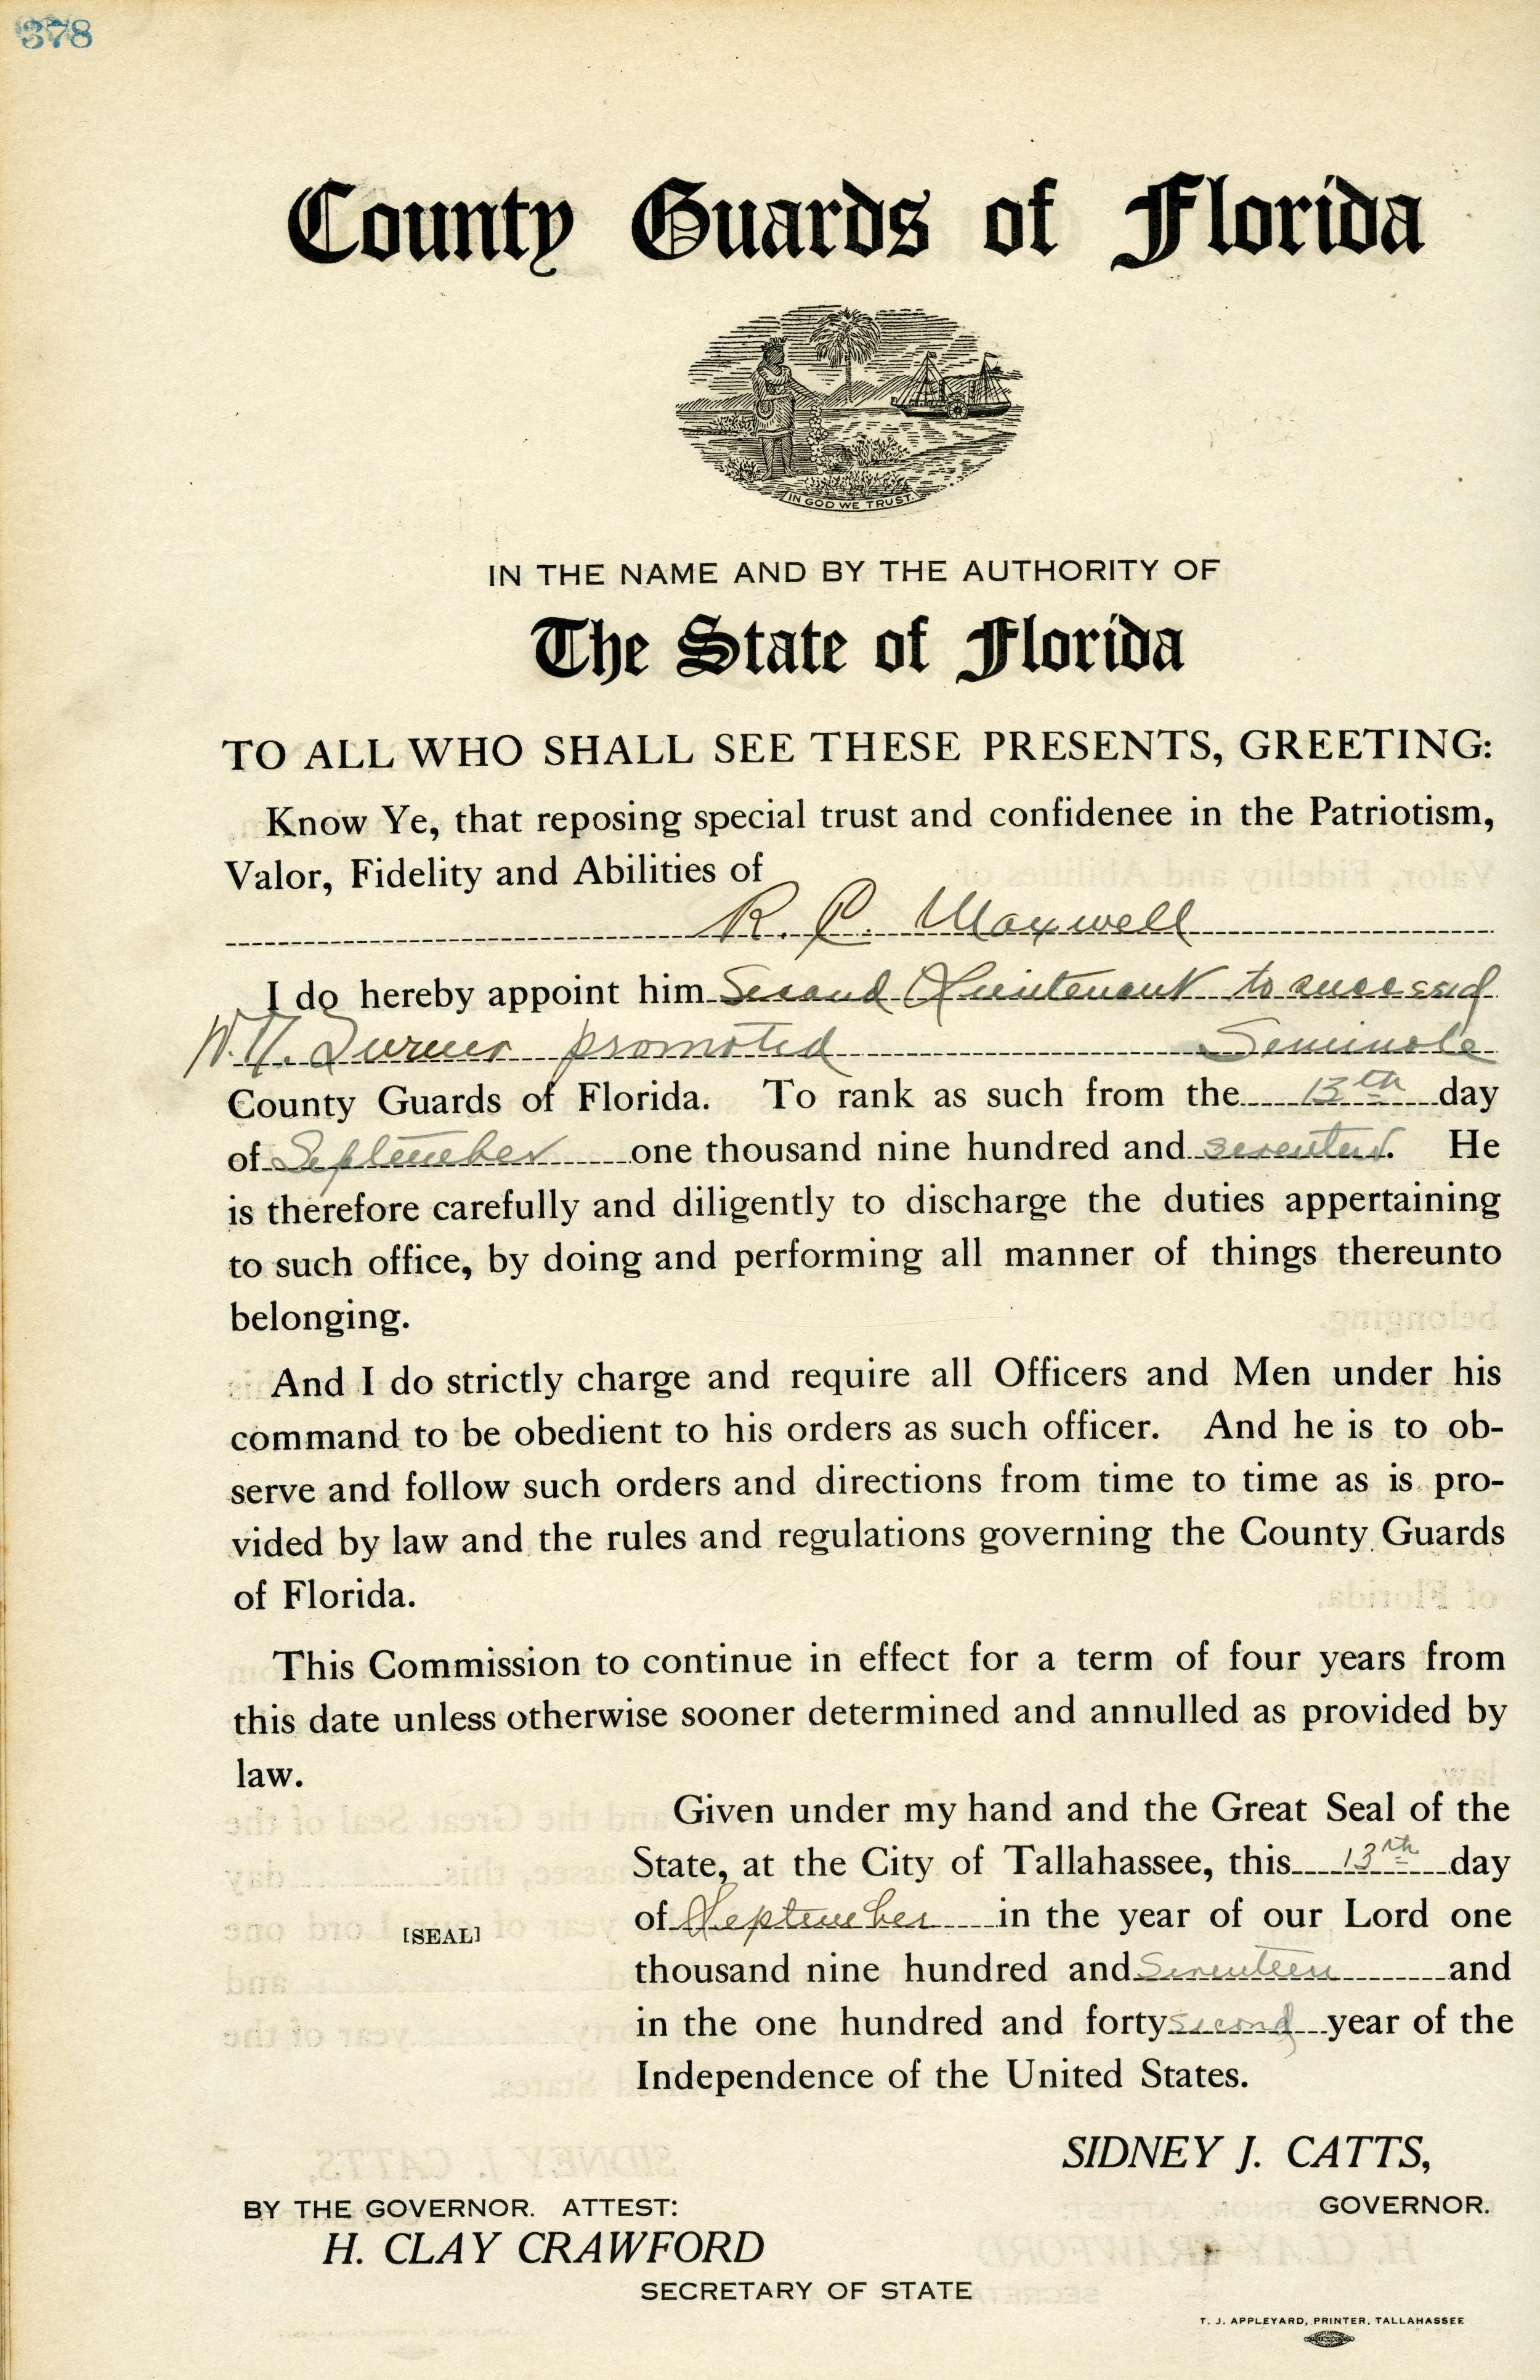 378
County Guards of Florida
IN GOD WE TRUST.
IN THE NAME AND BY THE AUTHORITY OF
The State of Florida
TO ALL WHO SHALL SEE THESE PRESENTS, GREETING:
Know Ye, that reposing special trust and confidenee in the Patriotism,
Valor, Fidelity and Abilities of
R. C. Maxwell
I do hereby appoint him Second Lieutenant to succeed
Turner promoted Seminole
County Guards of Florida. To rank as such from the 13th day
of September one thousand nine hundred and seventeen. He
is therefore carefully and diligently to discharge the duties appertaining
to such office, by doing and performing all manner of things thereunto
belonging.
And I do strictly charge and require all Officers and Men under his
command to be obedient to his orders as such officer. And he is to ob-
serve and follow such orders and directions from time to time as is pro-
vided by law and the rules and regulations governing the County Guards
of Florida.
This Commission to continue in effect for a term of four years from
this date unless otherwise sooner determined and annulled as provided by
law.
Given under my hand and the Great Seal of the
State, at the City of Tallahassee, this 13th day
of September in the year of our Lord one
[SEAL]
thousand nine hundred and Seventeen and
in the one hundred and forty second year of the
Independence of the United States.
SIDNEY J. CATTS,
BY THE GOVERNOR. ATTEST: GOVERNOR.
H. CLAY CRAWFORD
SECRETARY OF STATE
T. J. APPLEYARD, PRINTER, TALLAHASSEE